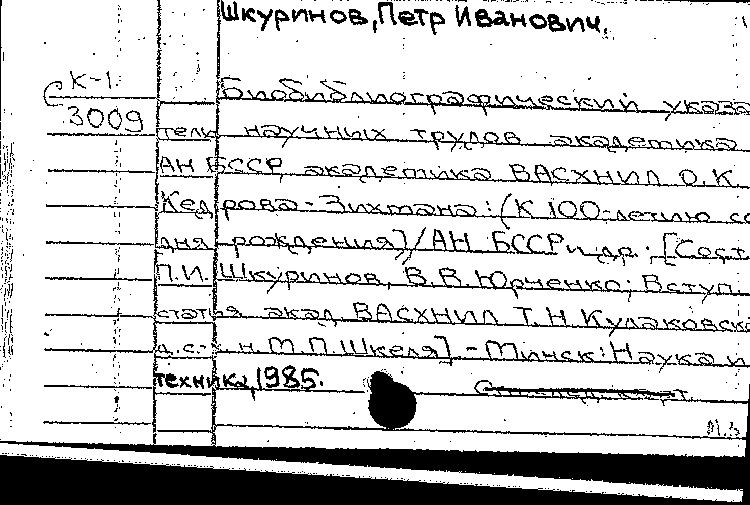 Шкуринов, Петр Иванович.
К-1
3009
Биобиблиографический указа
тель научных трудов академика
АН БССР, академика ВАСХНИЛ О.К.
Кедрова-Зихмана: (К 100-летию со
дня рождения)/АН БССР и др.; [Сост.
П.И. Шкуринов, В.В. Юрченко; Вступ.
статья акад. ВАСХНИЛ Т.Н. Кулаковско
д.с.-х.н. М.П. Шкеля] - Минск: Наука и
техника, 1985.